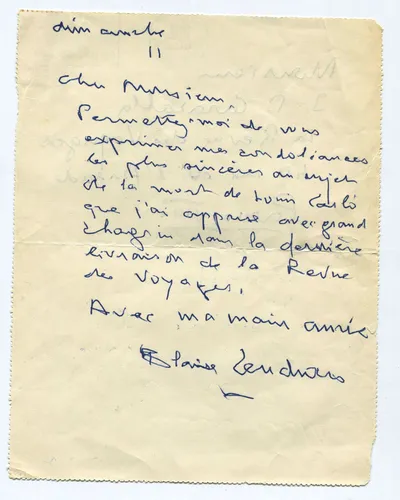 dimanche
11
Cher Monsieur,
Permettez-moi de vous
exprimer mes condoléances
les plus sincères au sujet
de la mort de Louis Carlo
que j'ai apprise avec grand
chagrin dans la dernière
livraison de la Revue
des Voyages.
Avec ma main amie
Blaise Cendrars